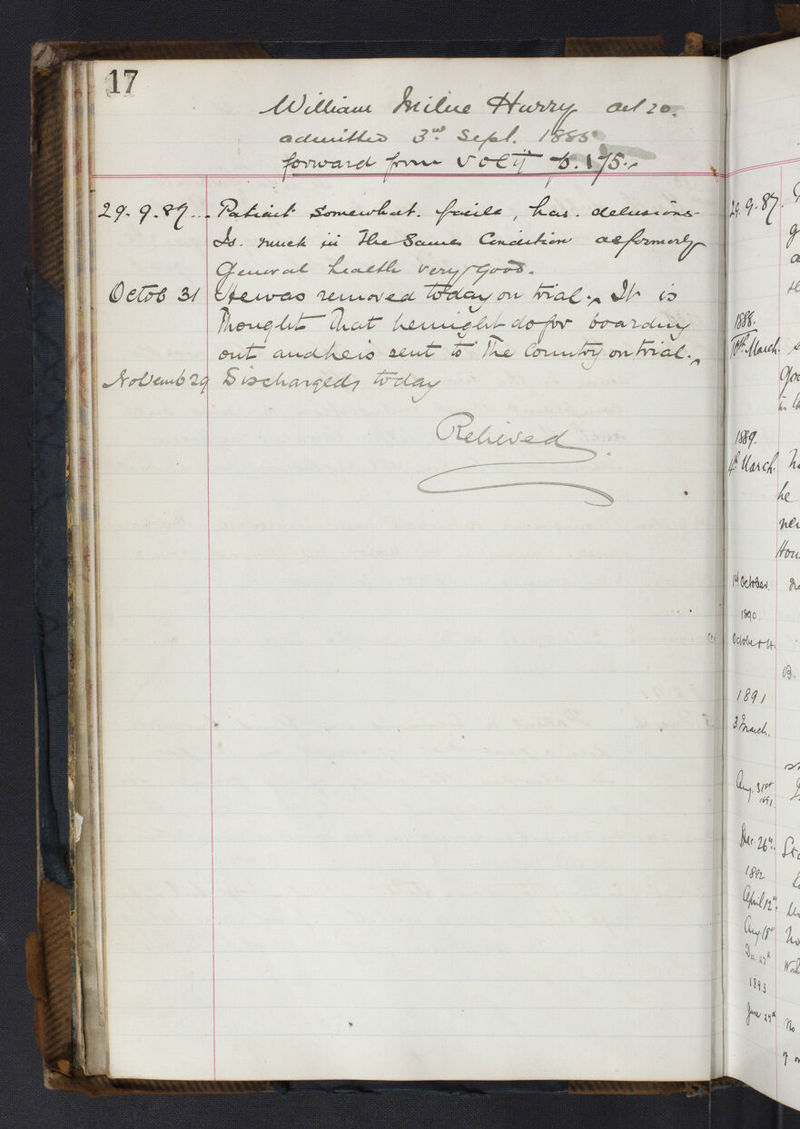 17
William Milne Hurry aet 20.
admitted 3rd Sept. 1885
forward from Vol II p. 175.
29. 9. 87... Patient somewhat facile, has delusions.
Is much in The Same Condition as formerly
General health very good.
Octob 31 He was removed today on trial. It is
Thought That he might do for boarding
out and he is sent to The Country on trial.
Novemb 29 Discharged today
Relieved
29. 9. 87.
1888.
10th March.
1889.
4th March.
he
1st October.
1890.
October
1891
3 March.
Aug. 31st
1891
Dec. 26th.
1892
April 12th.
Aug 18th
1893
June 29th
No